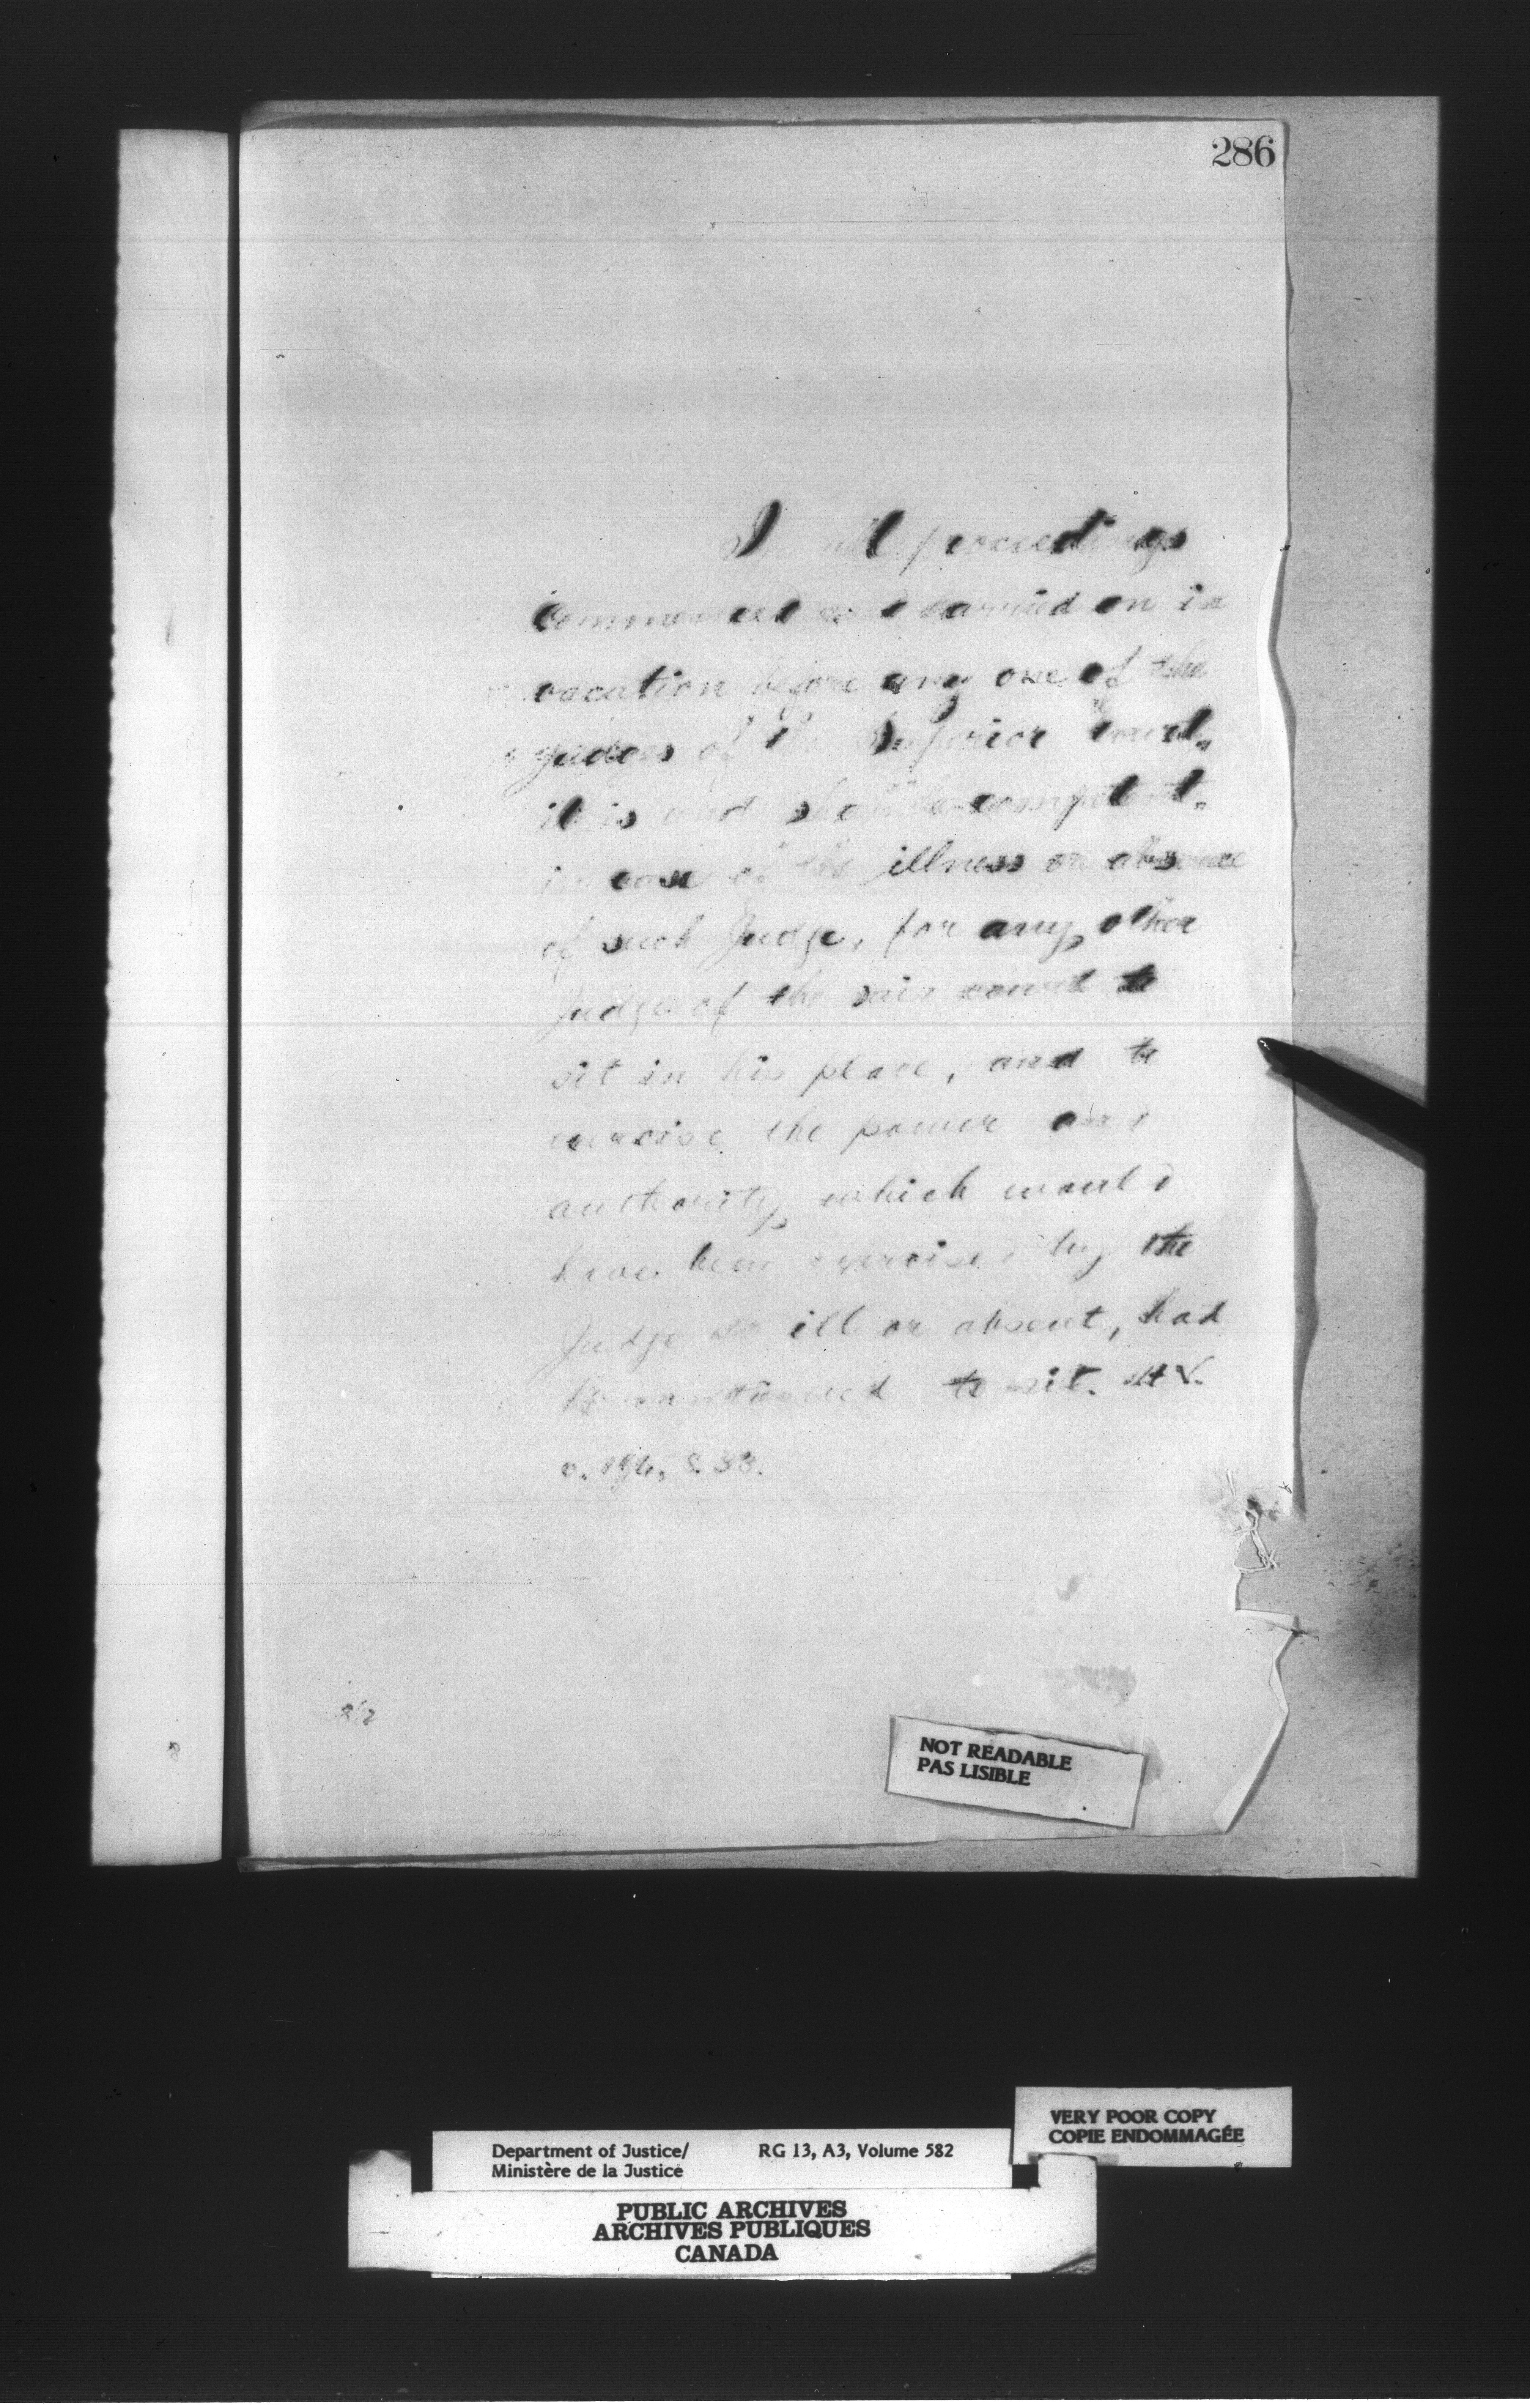 286
In all proceedings
commenced and carried on in
vacation before any one of the
judges of the Superior Court,
it is and shall be competent,
in case of the illness or absence
of such Judge, for any other
Judge of the said court to
sit in his place, and to
exercise the power and
authority which would
have been exercised by the
Judge so ill or absent, had
he continued to sit.
s. 33.
NOT READABLE
PAS LISIBLE
VERY POOR COPY
COPIE ENDOMMAGÉE
Department of Justice/ RG 13, A3, Volume 582
Ministère de la Justice
PUBLIC ARCHIVES
ARCHIVES PUBLIQUES
CANADA